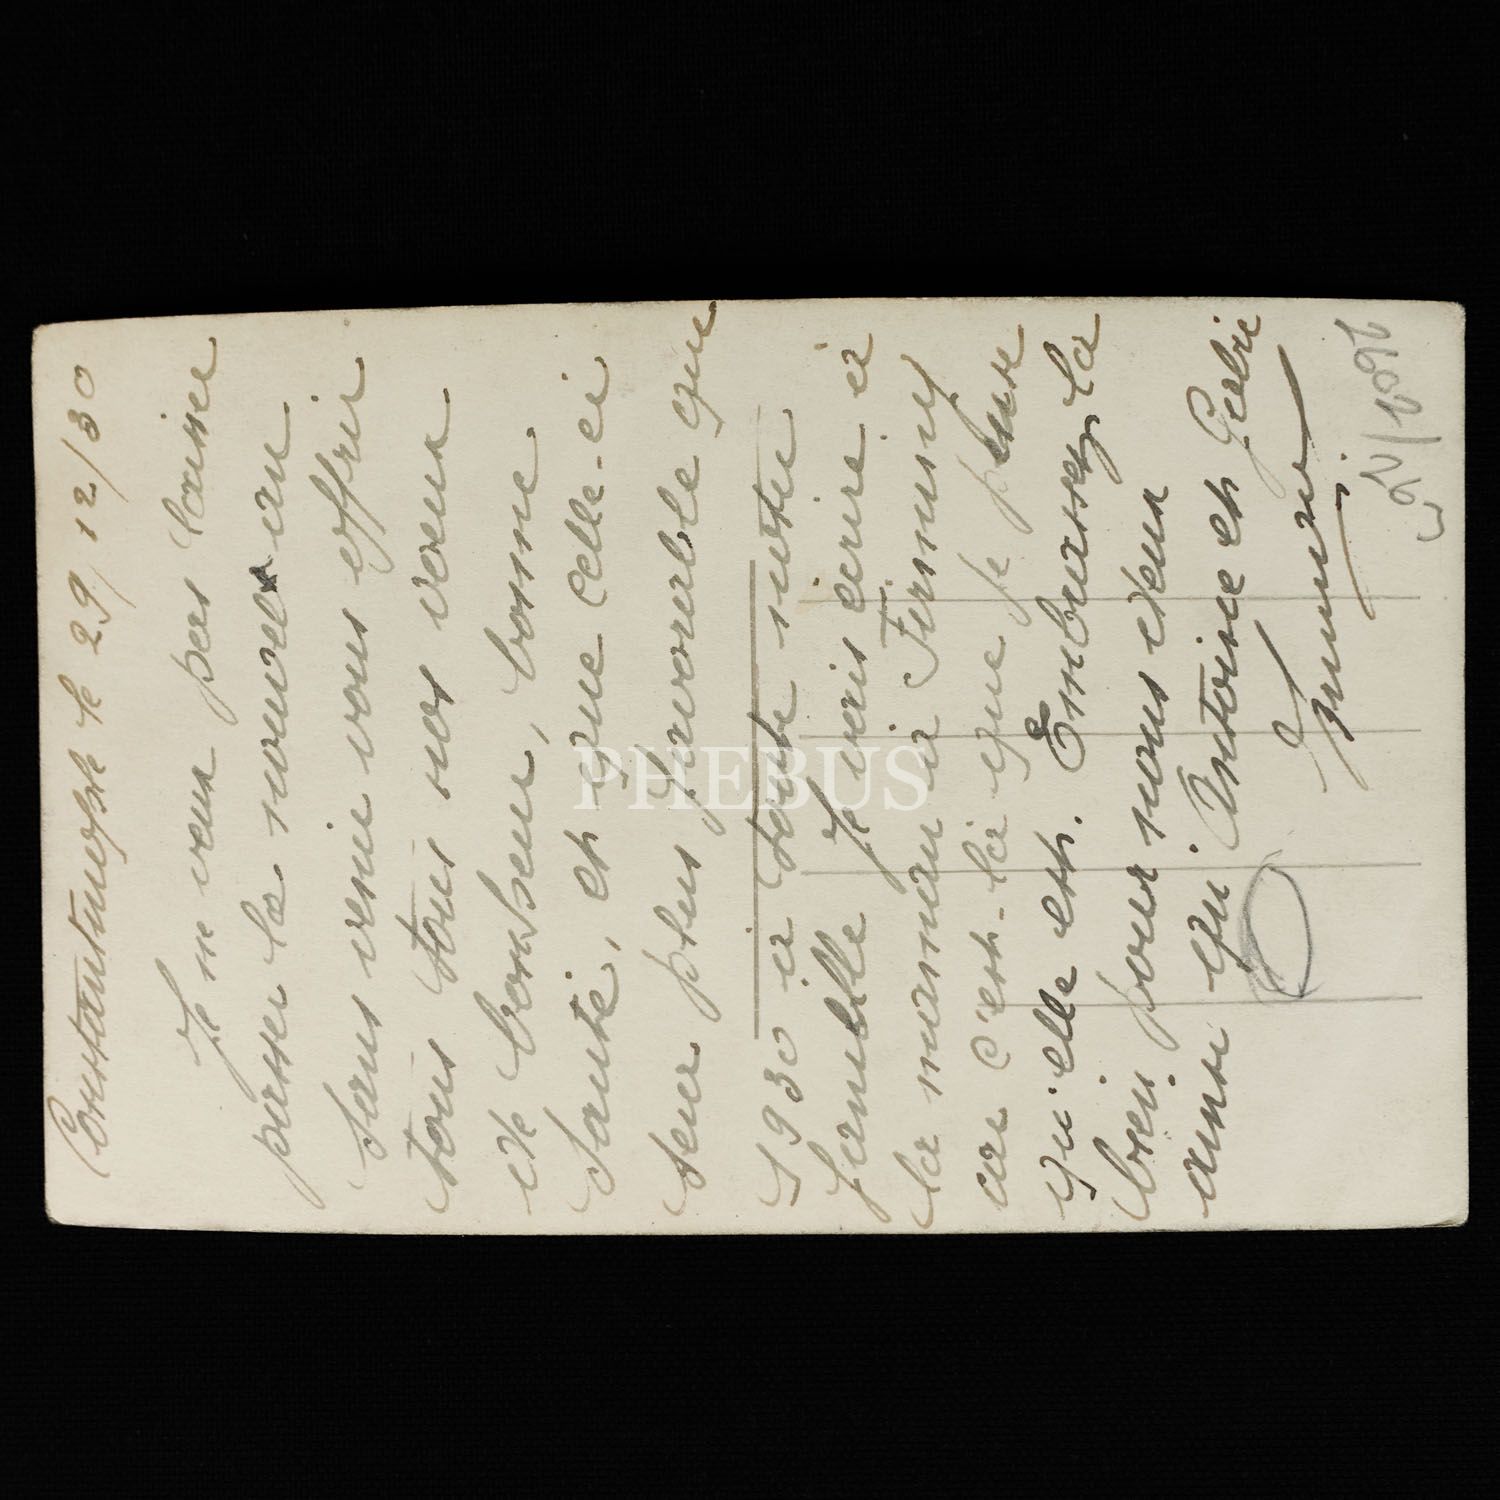 Constantinople le 29/12/30
Je ne veux pas laisser
passer la nouvel an
sans venir vous offrir
tous tous nos voeux
de bonheur, bonne
santé, et que celle-ci
sera plus favorable que
1930 à toute notre
famille. Je vais écrire à
la maman à Firminy
car c'est-là que je pense
qu'elle est. Embrassez la
bien pour nous deux
ainsi qu' Antoine et
PHEBUS